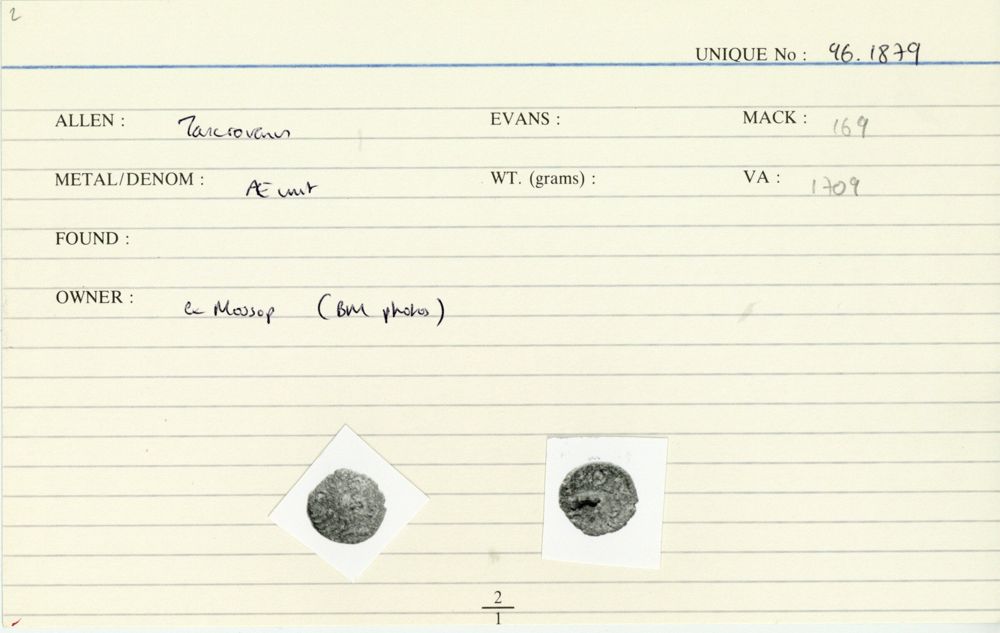 2
UNIQUE No : 96.1879
ALLEN : Tasciovanus EVANS : MACK : 169
METAL/DENOM : Æ unit WT. (grams) : VA : 1709
FOUND :
OWNER : ex Mossop (BM photos)
2
1